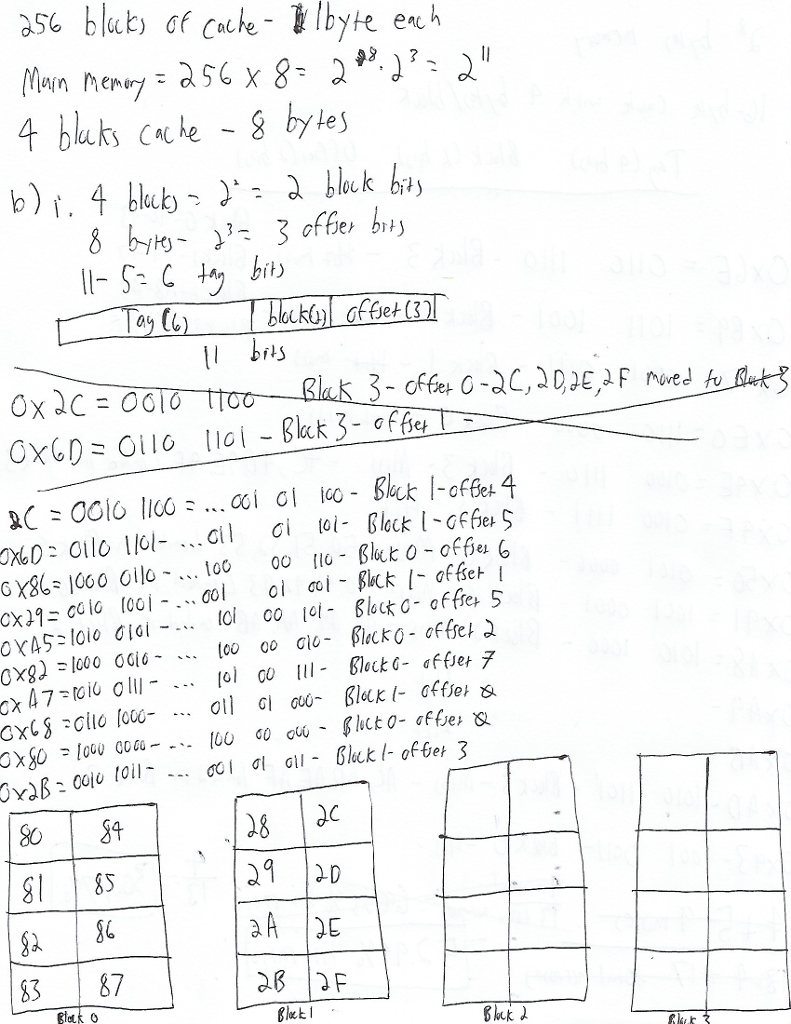 256 blocks of cache - 1byte each
Main memory = 256 x 8 = 2⁸ · 2³ = 2¹¹
4 blocks cache - 8 bytes
b) i. 4 blocks = 2² = 2 block bits
8 bytes - 2³ = 3 offset bits
11 - 5 = 6 tag bits
Tag (6) block(2) offset (3)
11 bits
0x2C = 0010 1100 - Block 3 - offset 0 - 2C, 2D, 2E, 2F moved to Block 3
0x6D = 0110 1101 - Block 3 - offset 1 -
2C = 0010 1100 = ... 001 01 100 - Block 1 - offset 4
0x6D = 0110 1101 - ... 011 01 101 - Block 1 - offset 5
0x86 = 1000 0110 - ... 100 00 110 - Block 0 - offset 6
0x29 = 0010 1001 - ... 001 01 001 - Block 1 - offset 1
0xA5 = 1010 0101 - ... 101 00 101 - Block 0 - offset 5
0x82 = 1000 0010 - ... 100 00 010 - Block 0 - offset 2
0xA7 = 1010 0111 - ... 101 00 111 - Block 0 - offset 7
0x68 = 0110 1000 - ... 011 01 000 - Block 1 - offset 0
0x80 = 1000 0000 - ... 100 00 000 - Block 0 - offset 0
0x2B = 0010 1011 - ... 001 01 011 - Block 1 - offset 3
80 84 28 2C
81 85 29 2D
82 86 2A 2E
83 87 2B 2F
Block 0 Block 1 Block 2 Block 3